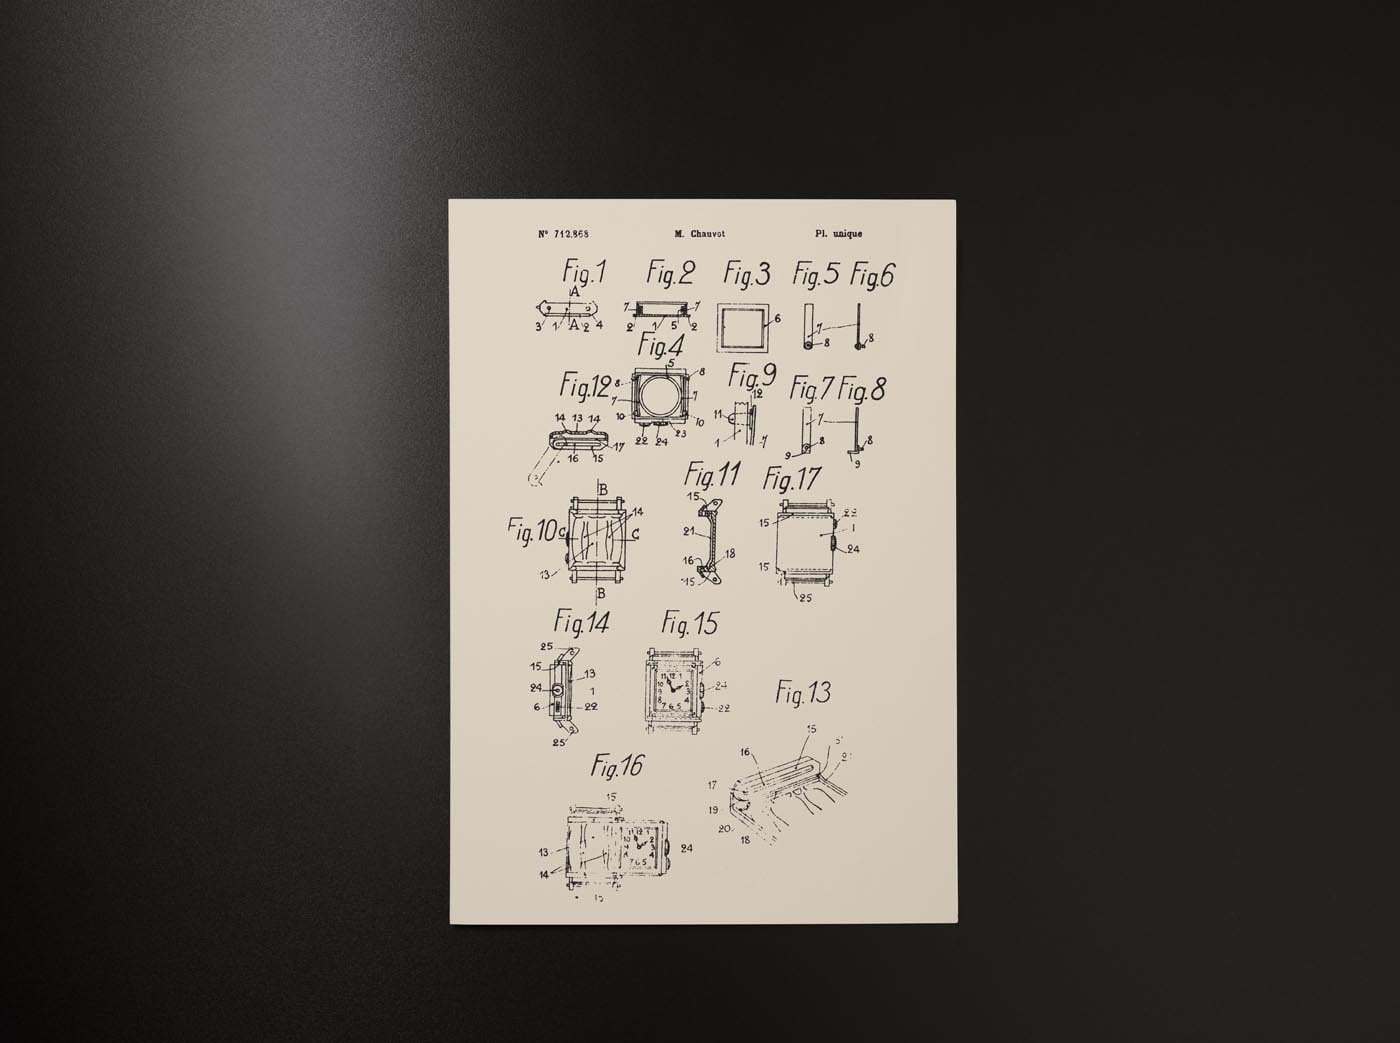 N° 712.868 M. Chauvot Pl. unique
Fig.1 Fig.2 Fig.3 Fig.5 Fig.6
A
7 7 6 7
3 1 A 2 4 2 1 5 2 8 8
Fig.4
5
Fig.12 8 8 Fig.9 Fig.7 Fig.8
12
7 7 7
14 13 14 10 10 11 8 8
23
17 22 24 1 7 9 9
16 15
Fig.11 Fig.17
B 15 22
14 15 1
Fig.10 C C 21
18 24
16
13 15 15
B 25
Fig.14 Fig.15
25 6
15 13 11 12 1
10 2
24 1 9 3 24
8 4
6 22 7 6 5 22
25
Fig.13
15
16
Fig.16
17
15 19
11 12 1 20
10 2 18
13 3 24
4
14 7 6 5